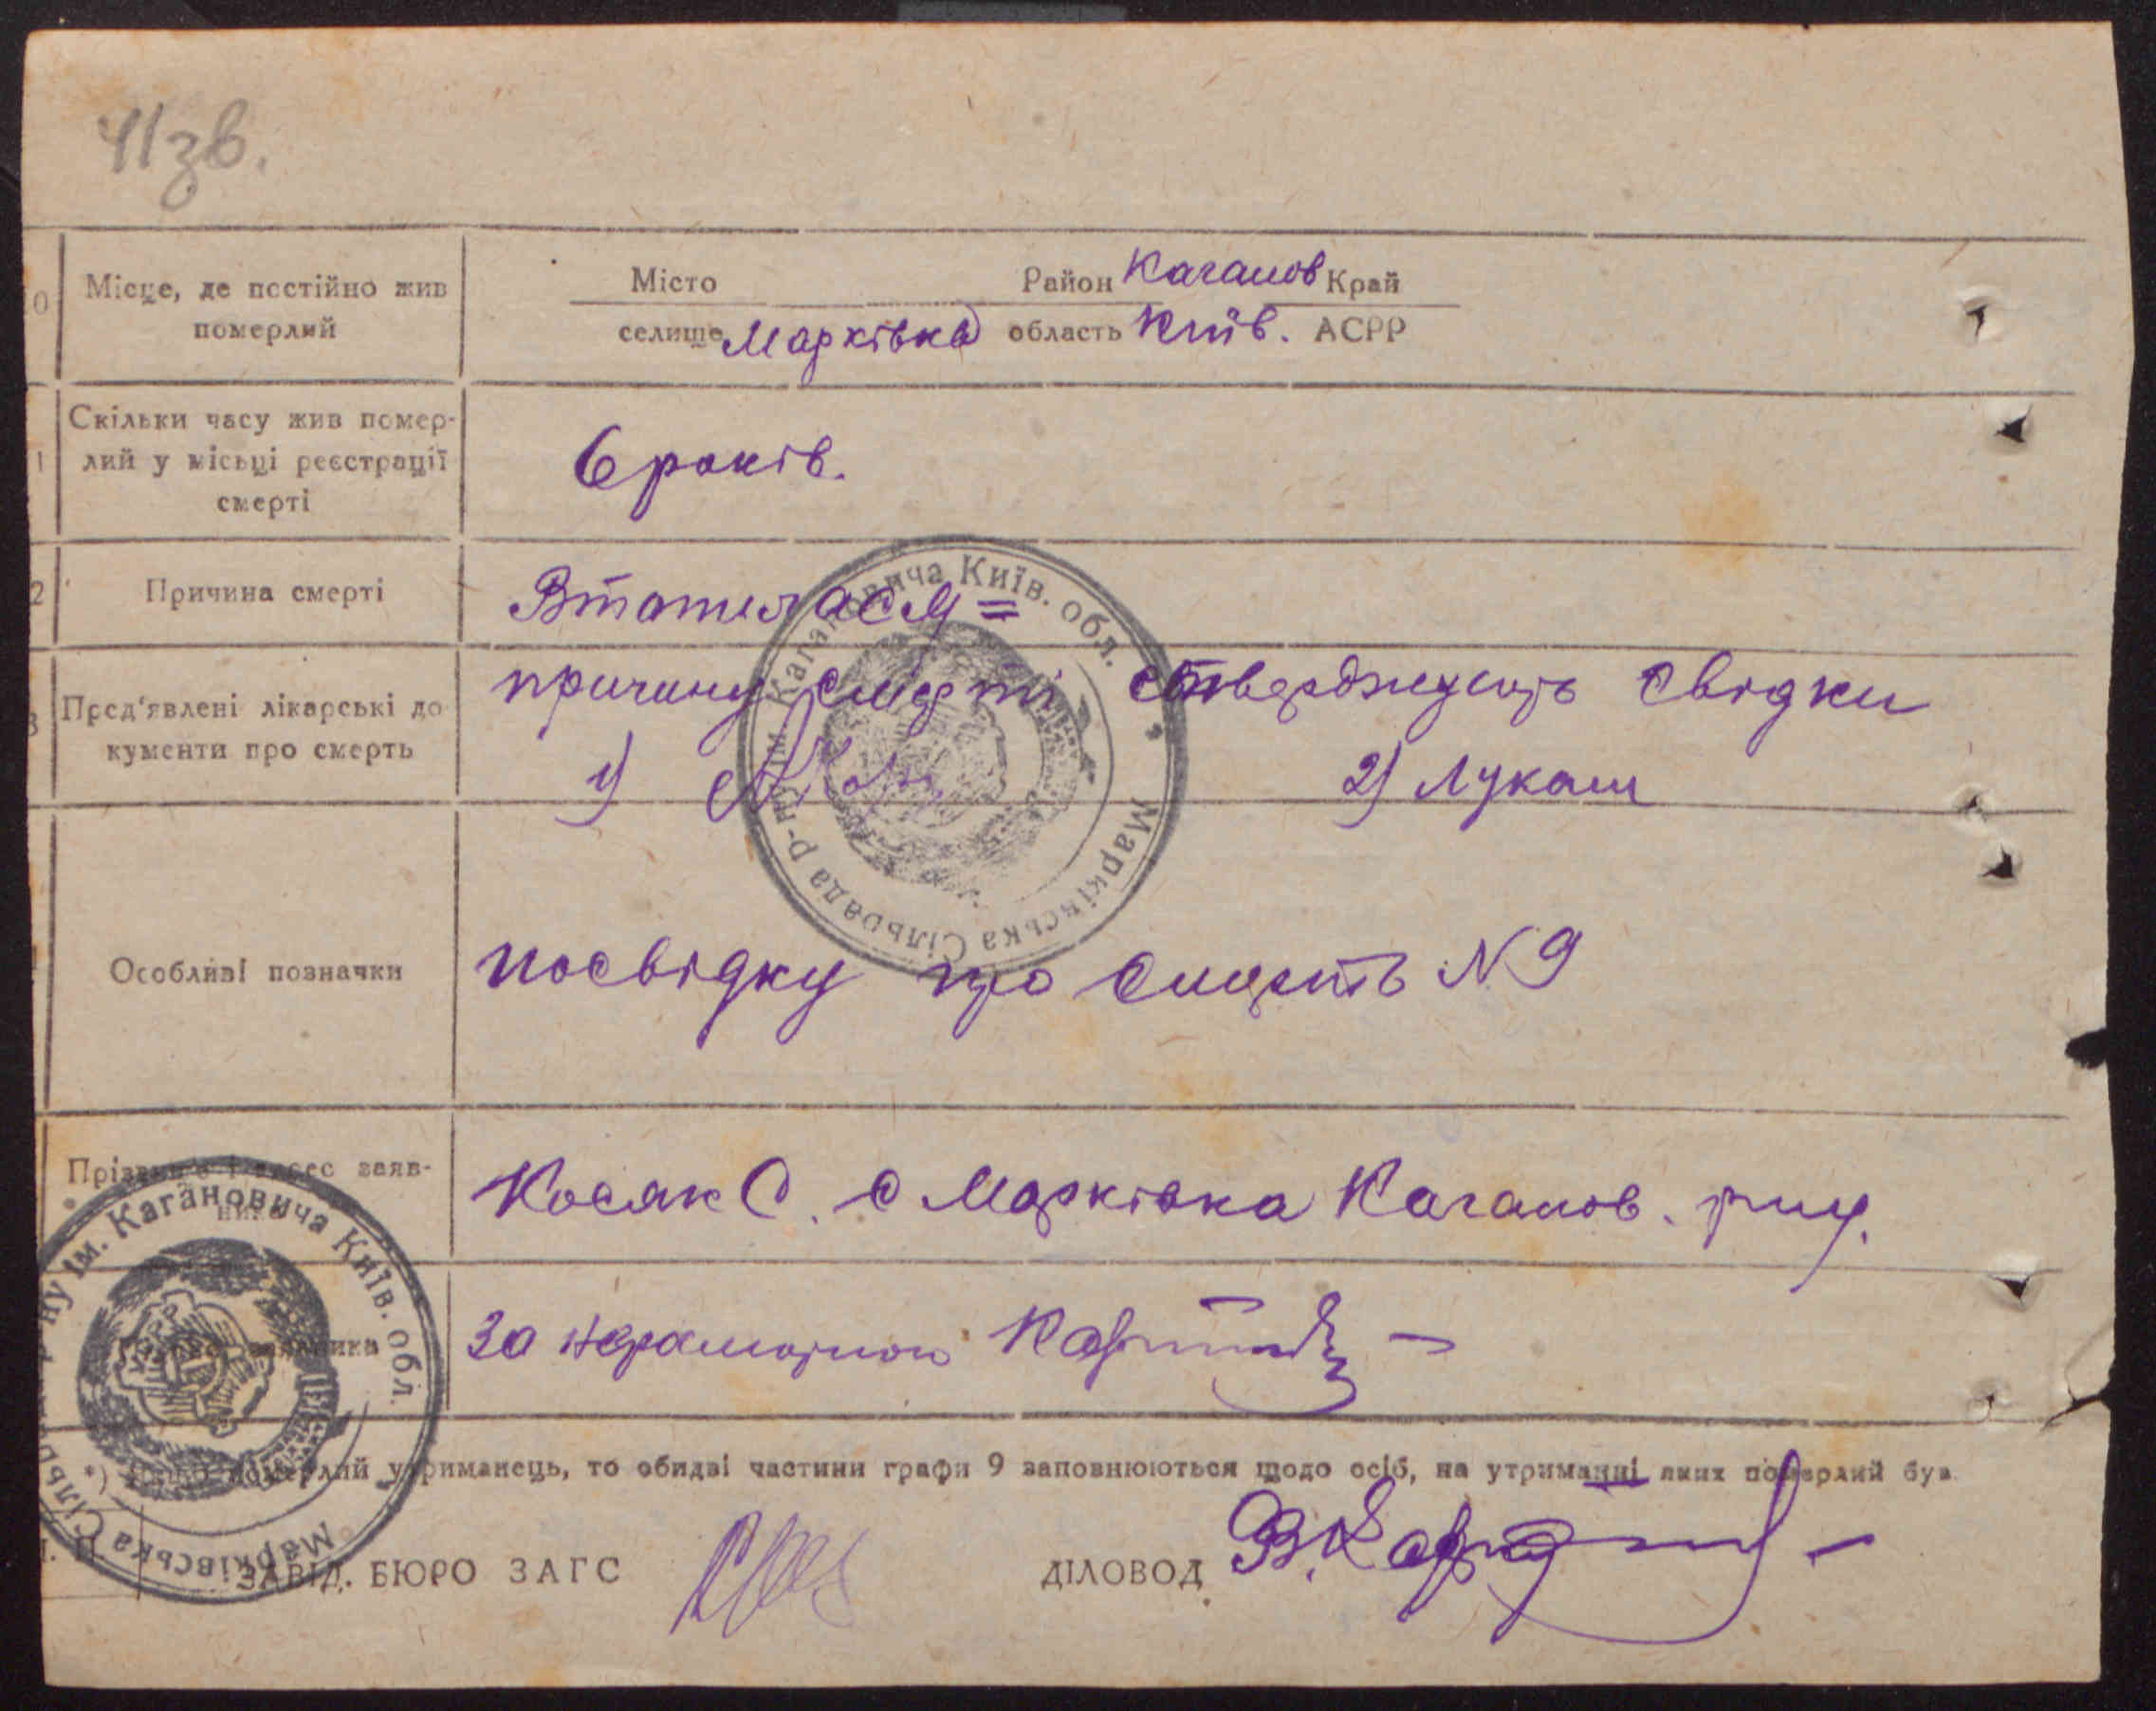 41зв.
0 Місце, де постійно жив померлий
Місто Район Каганов Край
селище Марківка область Київ. АСРР
1 Скільки часу жив помер-
лий у місьці реєстрації
смерті
6 років.
2 Причина смерті
Втопилася =
3 Пред'явлені лікарські до
кументи про смерть
причину смерті стверджують свідки
1) 2) Лукаш
Особливі позначки
посвідку про смерть N 9
Прізвище і адрес заяв-
ника
Косяк С. с Марківка Каганов. р-ну.
заявника
За неграмотною
*) Якщо померлий утриманець, то обидві частини графи 9 заповнюються щодо осіб, на утриманні яких померлий був.
ЗАВІД. БЮРО ЗАГС
ДІЛОВОД В.
Марківська Сільрада р-ну ім. Кагановича Київ. обл.
Марківська Сільрада р-ну ім. Кагановича Київ. обл.